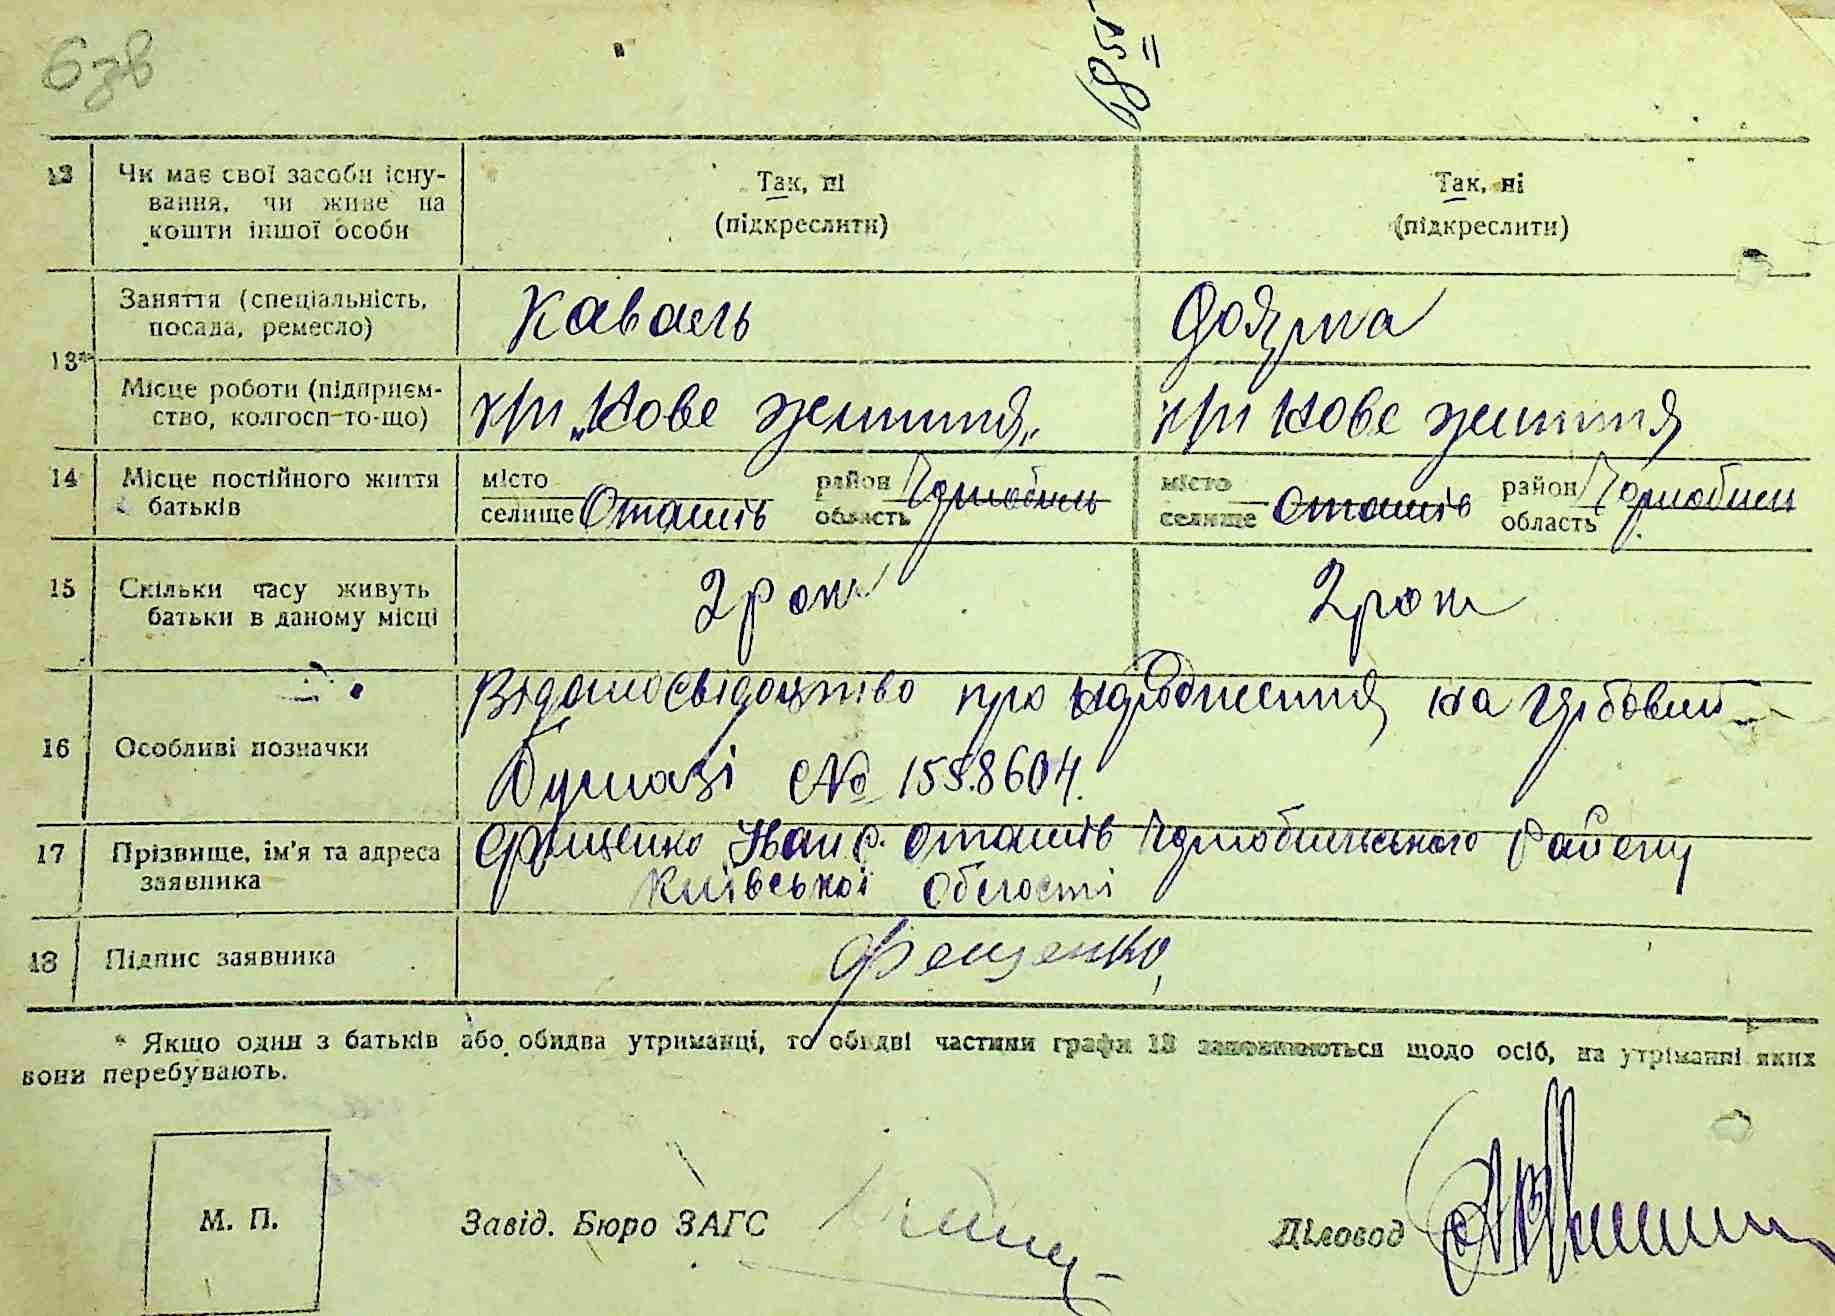 6зв
12 Чи має свої засоби існу- Так, ні Так, ні
вання, чи живе на (підкреслити) (підкреслити)
кошти іншої особи
Заняття (спеціальність, Каваль Доярка
посада, ремесло)
13*
Місце роботи (підприєм- к/г „Нове життя" к/г Нове життя
ство, колгосп-то-що)
14 Місце постійного життя місто район Чорнобиль місто район Чорнобиль
батьків селище Оташів область селище Оташів область
15 Скільки часу живуть 2 роки 2 роки
батьки в даному місці
Видано свідоцтво про народження на гербовий
16 Особливі позначки бумазі № 1558604.
17 Прізвище, ім'я та адреса Фещенко Іван с. Оташів Чорнобильського Району
заявника Київської Області
18 Підпис заявника Фещенко
* Якщо один з батьків або обидва утриманці, то обидві частини графи 13 заповнюються щодо осіб, на утріманні яких
вони перебувають.
М. П. Завід. Бюро ЗАГС Діловод